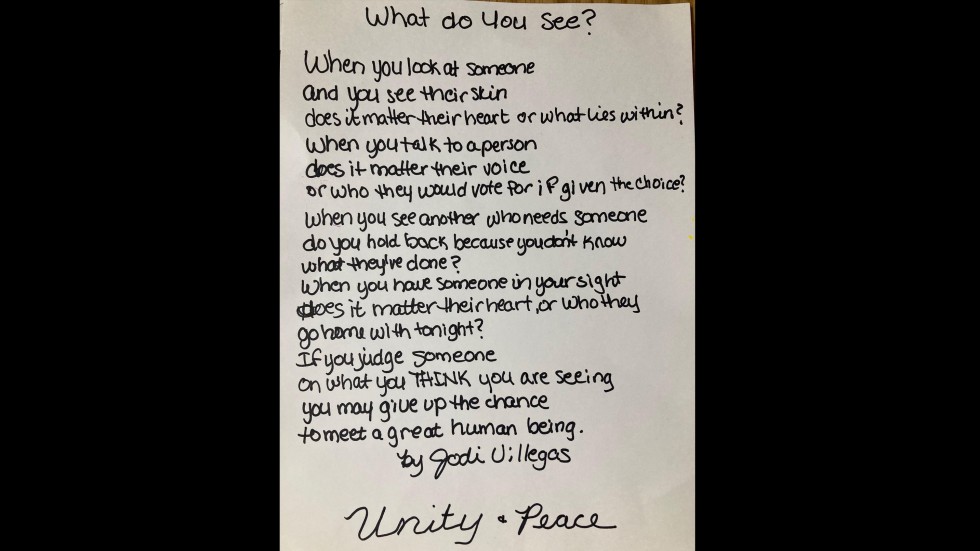 What do you see?
When you look at someone
and you see their skin
does it matter their heart or what lies within?
When you talk to a person
does it matter their voice
or who they would vote for if given the choice?
When you see another who needs someone
do you hold back because you don't know
what they've done?
When you have someone in your sight
does it matter their heart, or who they
go home with tonight?
If you judge someone
on what you THINK you are seeing
you may give up the chance
to meet a great human being.
by Jodi Villegas
Unity & Peace